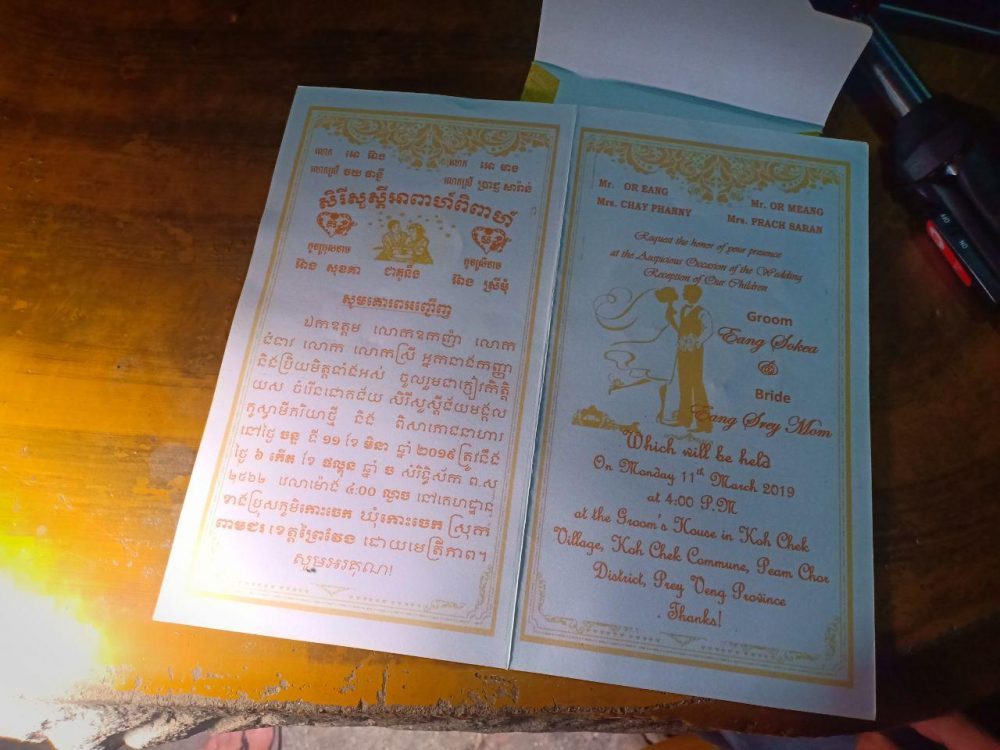 លោក អោ អ៊ាង
លោក អោ មាង
លោកស្រី ចយ ផានី
លោកស្រី ប្រាជ្ញ សារ៉ាន់
សិរីសួស្តីអាពាហ៍ពិពាហ៍
កូនប្រុសនាម
កូនស្រីនាម
អ៊ាង សុខគា ជាគូនឹង អ៊ាង ស្រីមុំ
សូមគោរពអញ្ជើញ
ឯកឧត្តម លោកឧកញ៉ា លោក
ជំទាវ លោក លោកស្រី អ្នកនាងកញ្ញា
និងប្រិយមិត្តទាំងអស់ ចូលរួមជាភ្ញៀវកិត្តិ
យស ចំរើនជោគជ័យ សិរីសួស្តីជ័យមង្គល
ក្នុង និង ពិសាភោជនាហារ
នៅថ្ងៃ ចន្ទ ទី ១១ ខែ មិនា ឆ្នាំ ២០១៩ ត្រូវនឹង
ថ្ងៃ ៦ កើត ខែ ផល្គុន ឆ្នាំ ច សំរឹទ្ធិស័ក ព.ស
២៥៦២ វេលាម៉ោង ៤:00 ល្ងាច នៅគេហដ្ឋាន
ខាងប្រុសភូមិកោះចេក ឃុំកោះចេក ស្រុក
ពាមជរ ខេត្តព្រៃវែង ដោយមេត្រីភាព។
សូមអរគុណ!
Mr. OR EANG
Mr. OR MEANG
Mrs. CHAY PHANNY
Mrs. PRACH SARAN
Request the honor of your presence
at the Auspicious Occasion of the Wedding
Reception of Our Children
Groom
Eang Sokea
&
Bride
Eang Srey Mom
Which will be held
On Monday 11th March 2019
at 4:00 P.M
at the Groom's House in Koh Chek
Village, Koh Chek Commune, Peam Chor
District, Prey Veng Province
. Thanks!
ON